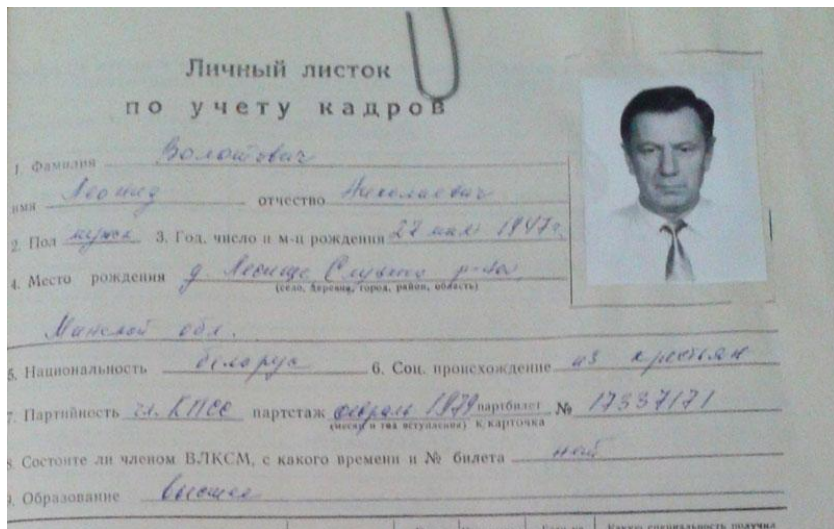 Личный листок
по учету кадров
1. Фамилия Волотович
имя Леонид отчество Николаевич
2. Пол мужск 3. Год, число и м-ц рождения 27 мая 1947г.
4. Место рождения д. Слуцкого р-на
(село, деревня, город, район, область)
Минской обл.
5. Национальность белорус 6. Соц. происхождение из крестьян
7. Партийность чл. КПСС партстаж февраль 1979 партбилет № 17337171
(месяц и год вступления) к/карточка
8. Состоите ли членом ВЛКСМ, с какого времени и № билета нет
9. Образование высшее
Какую специальность получил